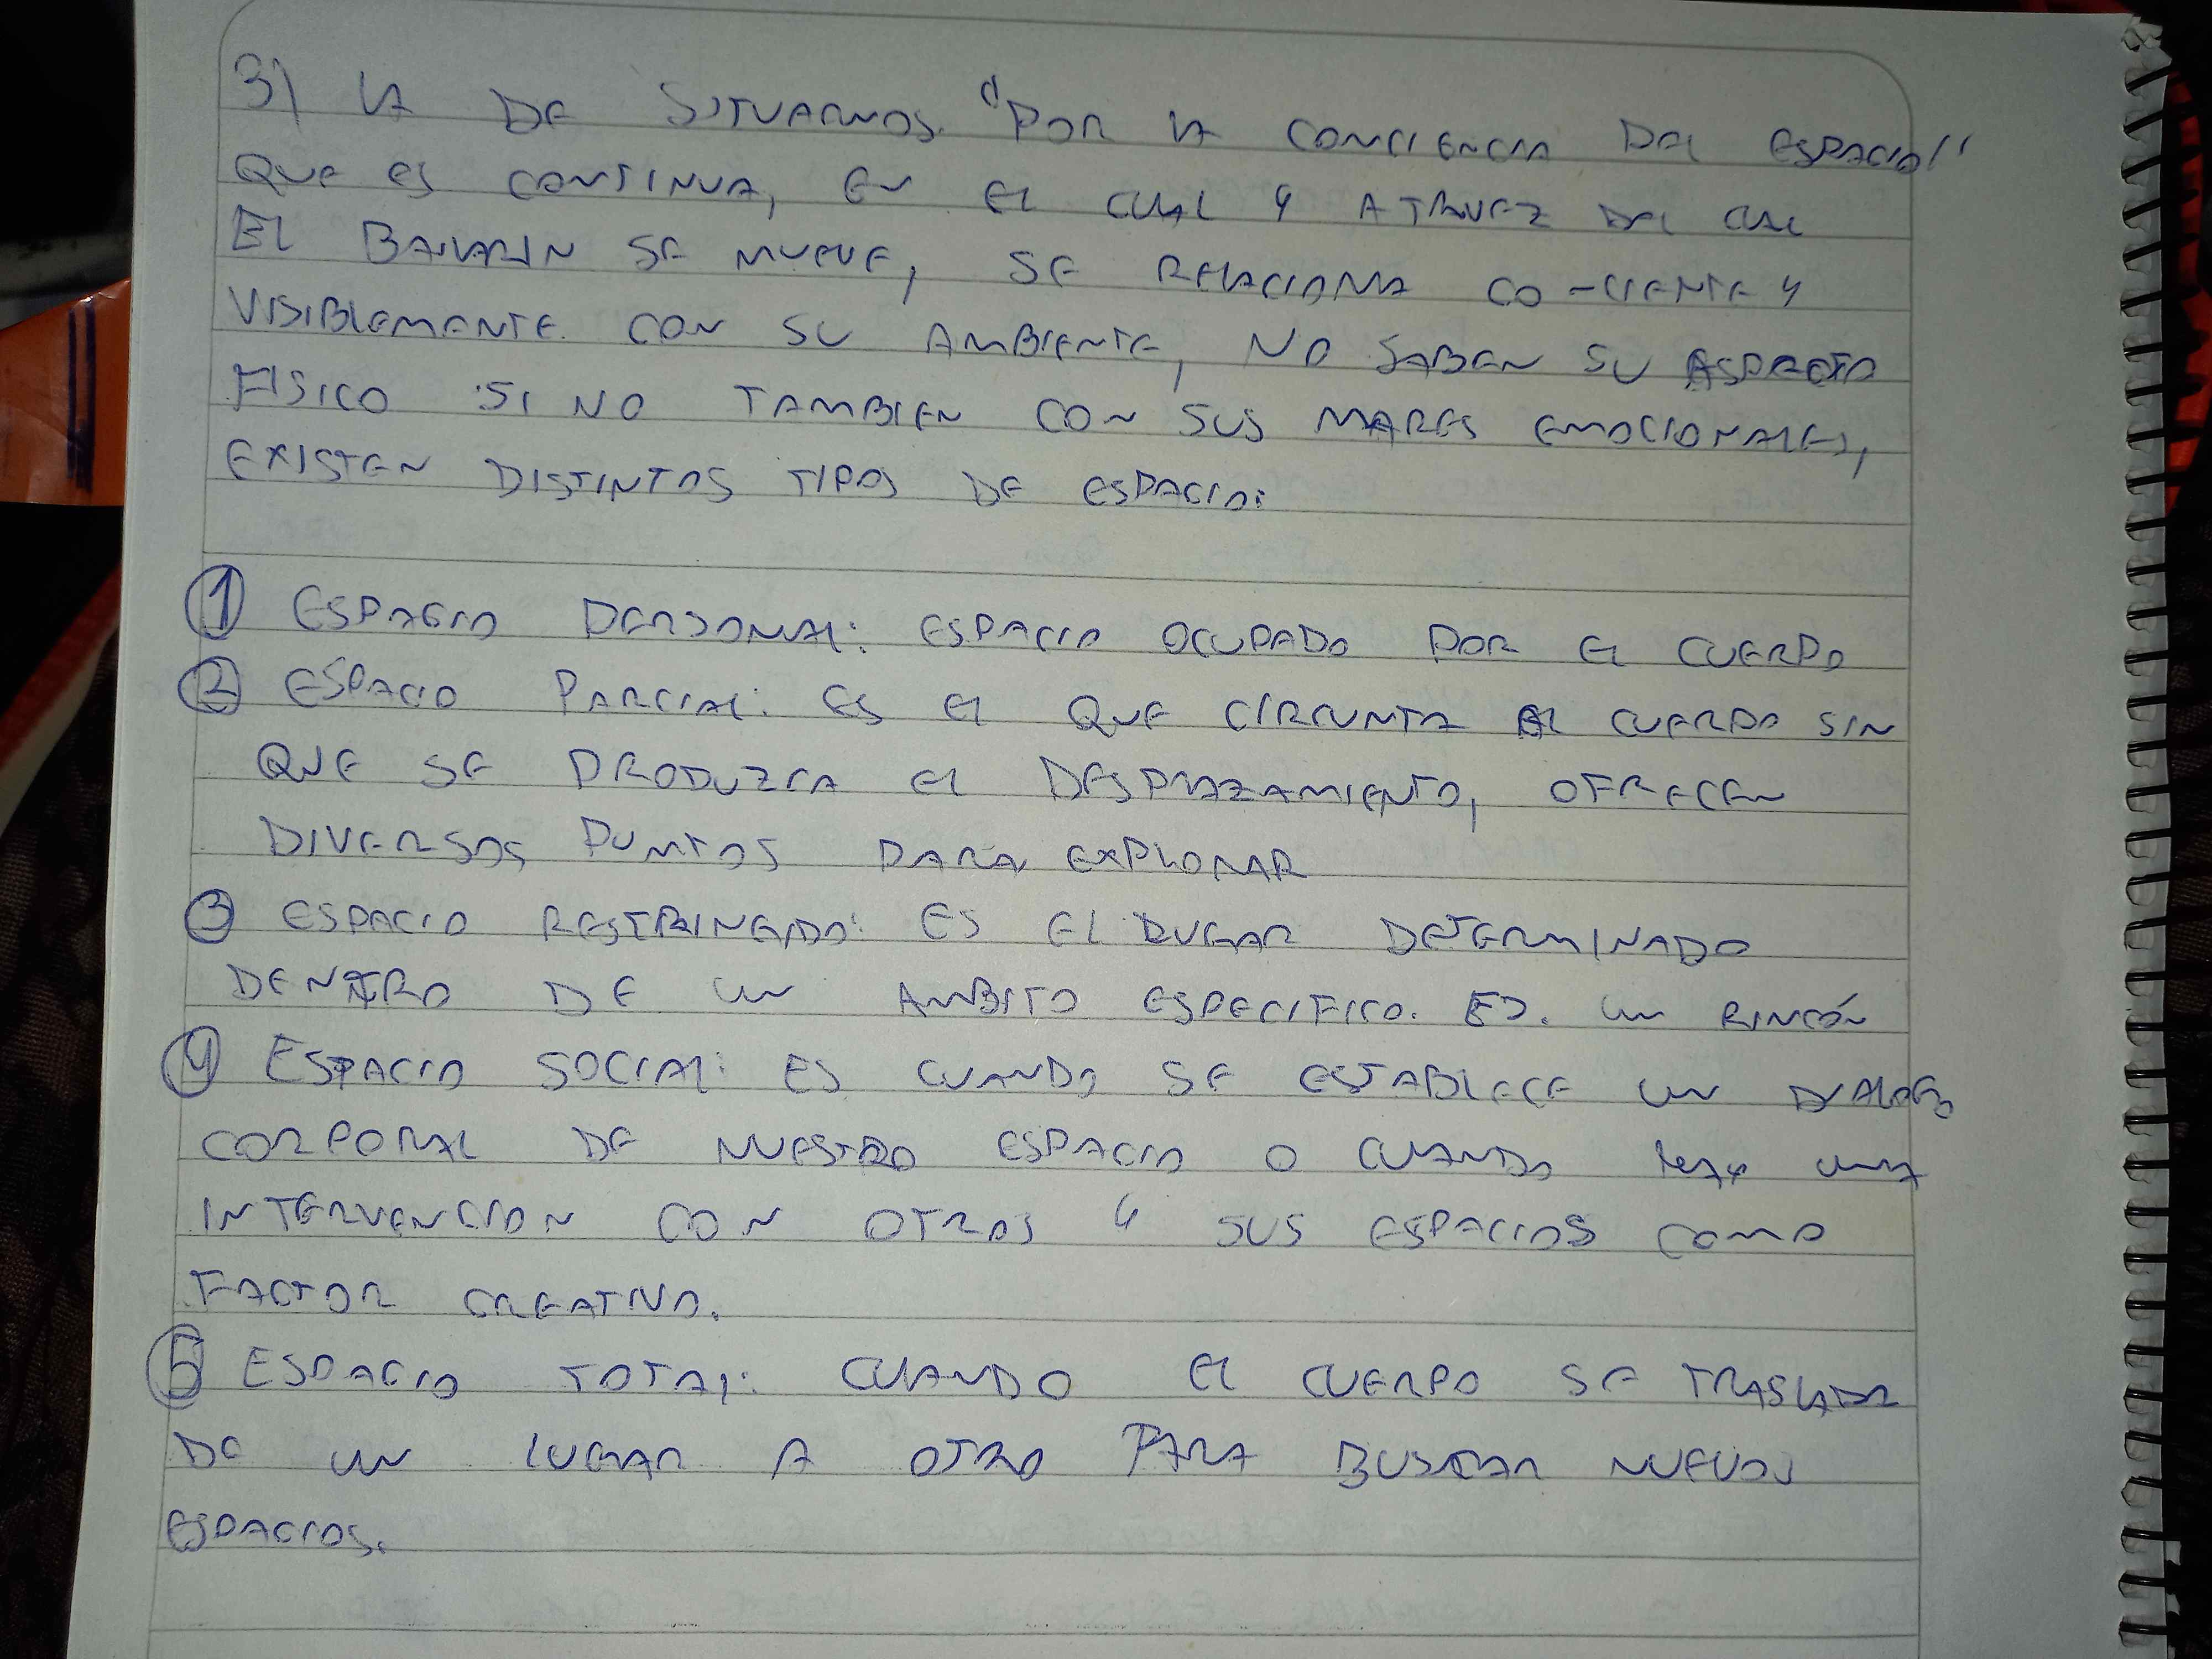 3) LA DE SITUARNOS "POR LA CONCIENCIA DEL ESPACIO"
QUE ES CONTINUA, EN EL CUAL Y ATRAVEZ DEL CUAL
EL BAILARIN SE MUEVE, SE RELACIONA CO-CIENTE Y
VISIBLEMENTE CON SU AMBIENTE, NO SABEN SU ASPECTO
FISICO SI NO TAMBIEN CON SUS MARES EMOCIONALES,
EXISTEN DISTINTOS TIPOS DE ESPACIO:
1 ESPACIO PERSONAL: ESPACIO OCUPADO POR EL CUERPO
2 ESPACIO PARCIAL: ES EL QUE CIRCUNTA AL CUERPO SIN
QUE SE PRODUZCA EL DESPLAZAMIENTO, OFRECEN
DIVERSOS PUNTOS PARA EXPLORAR
3 ESPACIO RESTRINGIDO: ES EL LUGAR DETERMINADO
DENTRO DE UN AMBITO ESPECIFICO. EJ. UN RINCÓN
4 ESPACIO SOCIAL: ES CUANDO SE ESTABLECE UN DIALOGO
CORPORAL DE NUESTRO ESPACIO O CUANDO UNA
INTERVENCION CON OTROS Y SUS ESPACIOS COMO
FACTOR CREATIVO.
5 ESPACIO TOTAL: CUANDO EL CUERPO SE TRASLADA
DE UN LUGAR A OTRO PARA BUSCAR NUEVOS
ESPACIOS.